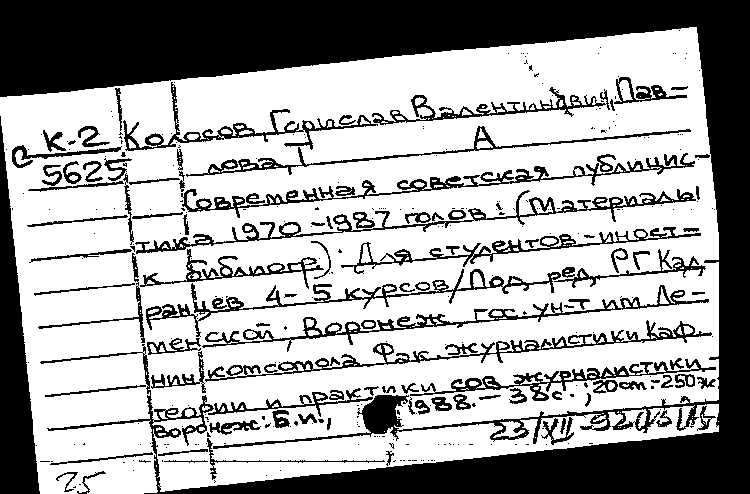 С К-2 Колосов, Горислав Валентинович, Пав=
5625 лова, Г А
Современная советская публицис-
тика 1970-1987 годов: (Материалы
к библиогр.): Для студентов-иност=
ранцев 4-5 курсов/Под ред. Р.Г Кад-
менской; Воронеж. гос. ун-т им. Ле-
нин. комсомола Фак. журналистики, Каф.
теории и практики сов журналистики.-
Воронеж: Б.и., 1988.- 38 с.; 20 см.- 250
23/XII-92
25